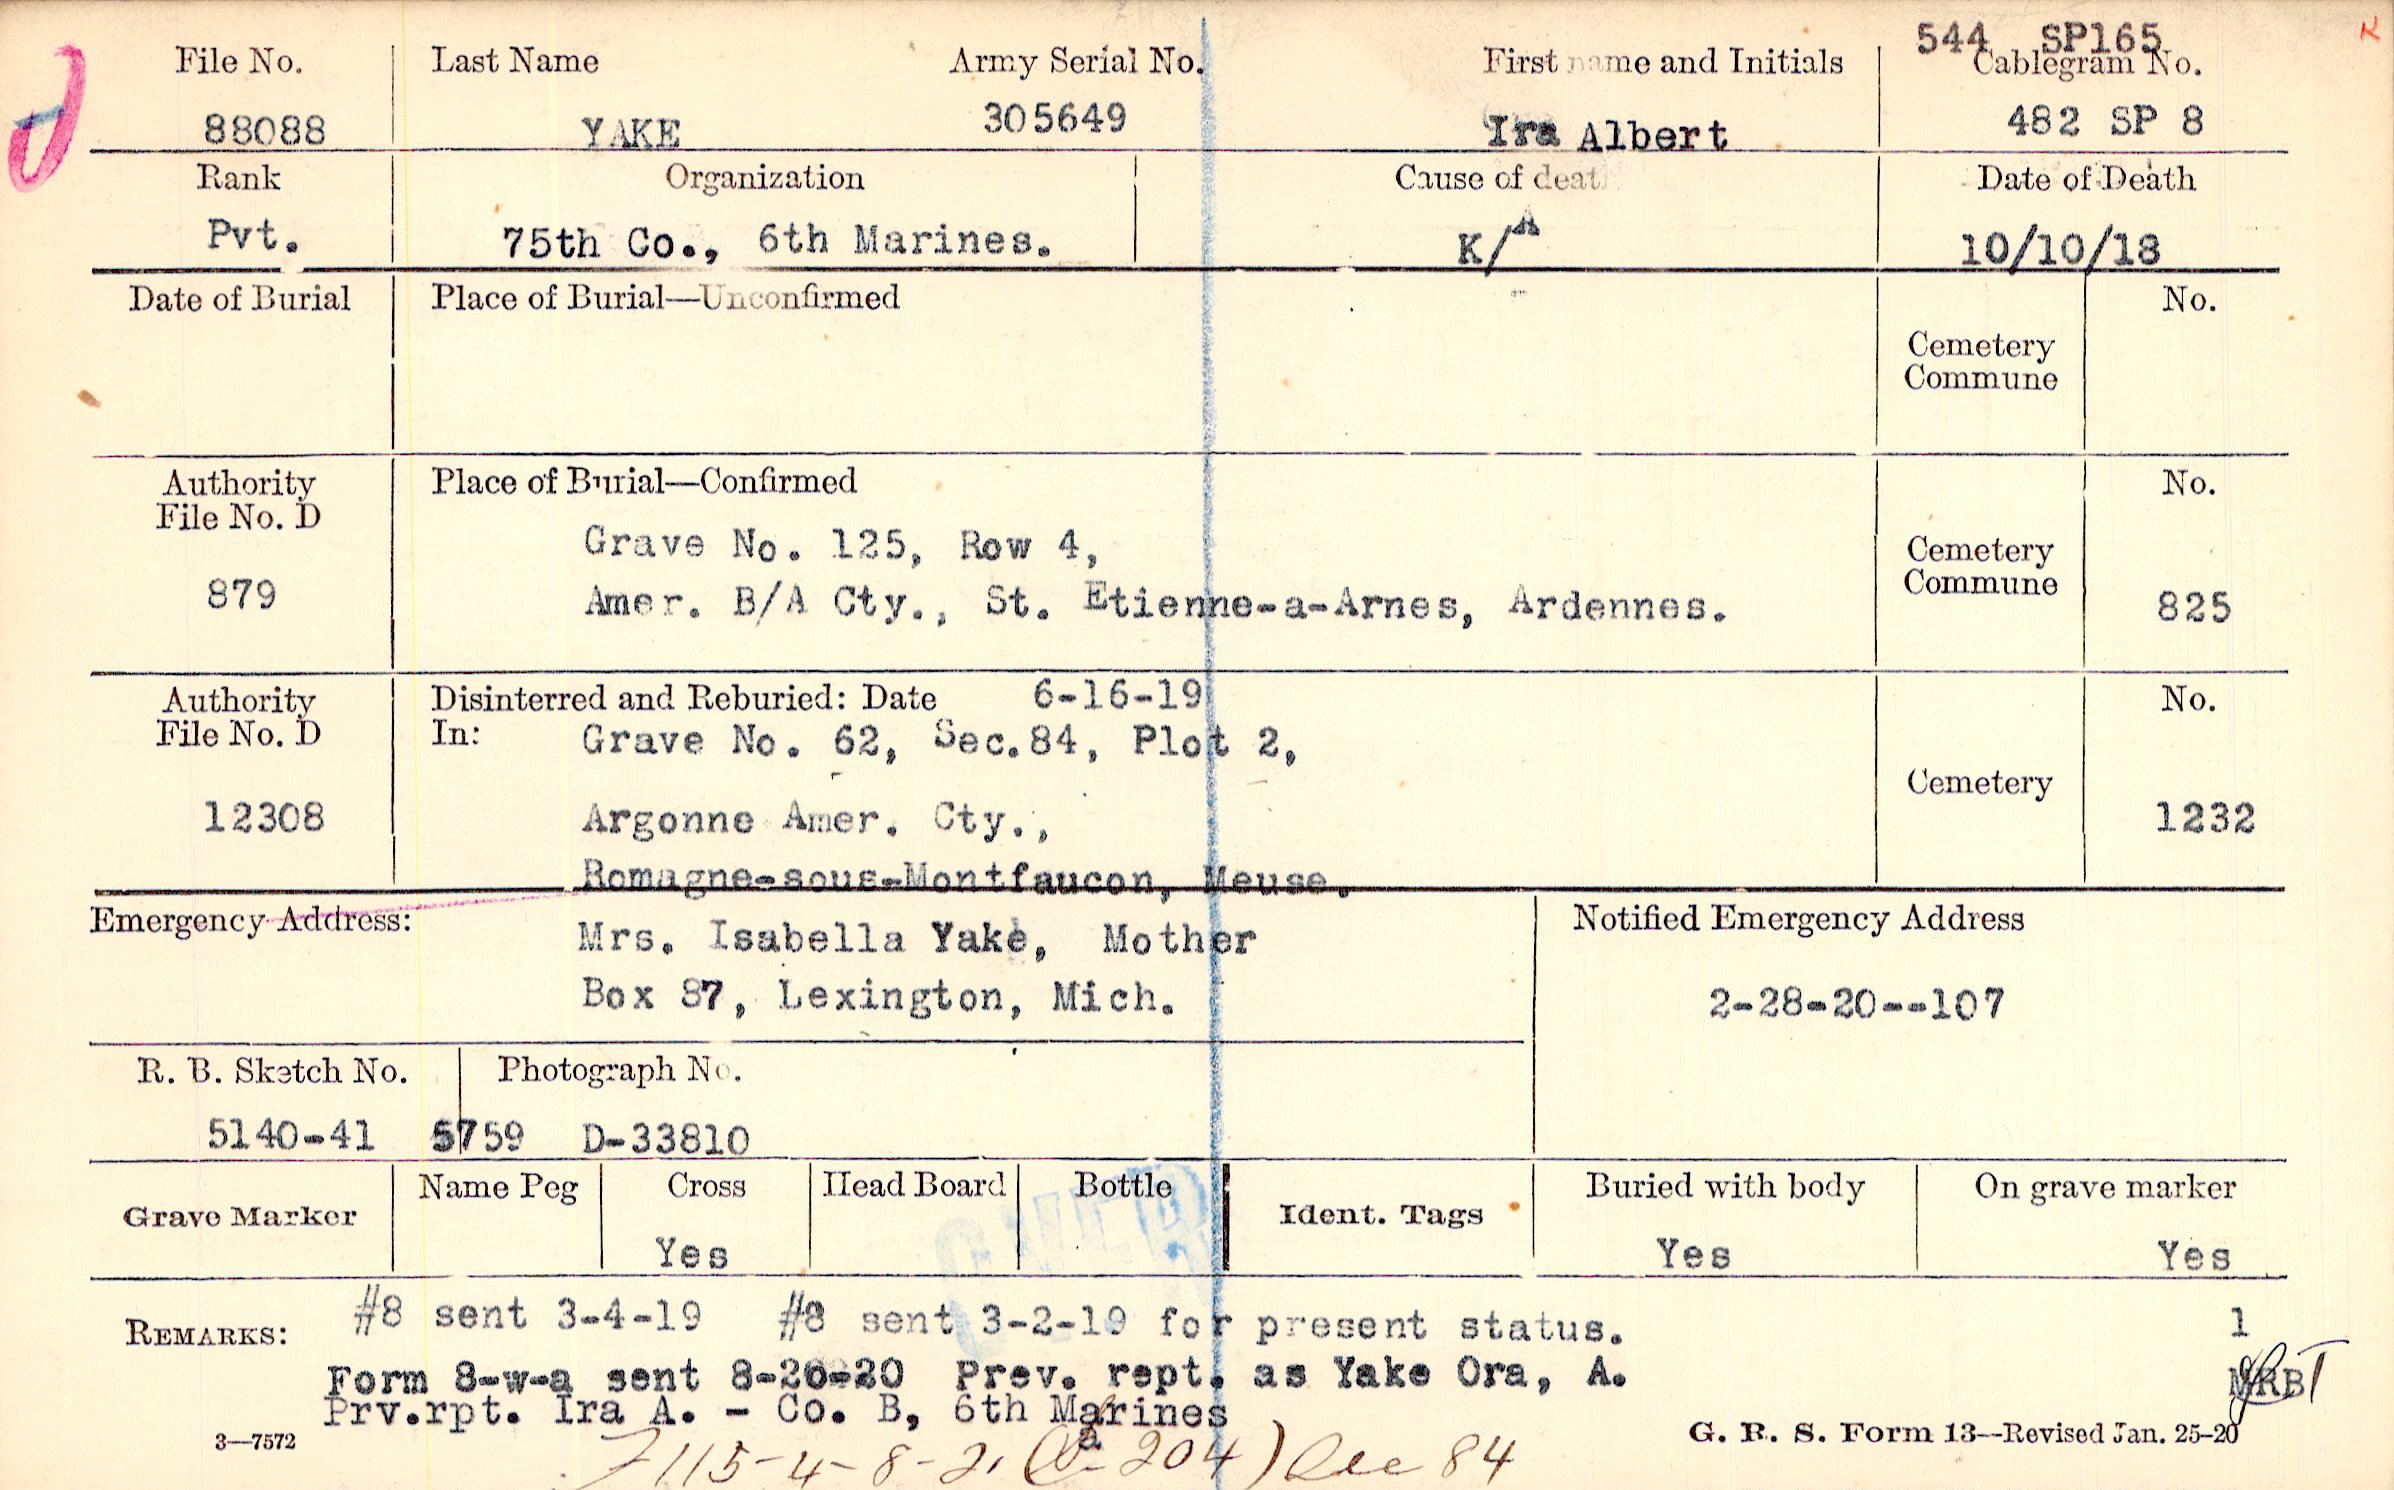 544 SP165
K
File No. Last Name Army Serial No. First name and Initials Cablegram No.
88088 YAKE 305649 Ira Albert 482 SP 8
Rank Organization Cause of deat Date of Death
Pvt. 75th Co., 6th Marines. K/A 10/10/18
Date of Burial Place of Burial—Unconfirmed No.
Cemetery
Commune
Authority Place of Burial—Confirmed No.
File No. D
Grave No. 125, Row 4,
Cemetery
Commune
879 Amer. B/A Cty., St. Etienne-a-Arnes, Ardennes. 825
Authority Disinterred and Reburied: Date 6-16-19 No.
File No. D In: Grave No. 62, Sec.84, Plot 2,
Cemetery
12308 Argonne Amer. Cty., 1232
Romagne-sous-Montfaucon, Meuse.
Emergency Address: Notified Emergency Address
Mrs. Isabella Yake, Mother
Box 87, Lexington, Mich. 2-28-20--107
R. B. Sketch No. Photograph No.
5140-41 5759 D-33810
Grave Marker Name Peg Cross Head Board Bottle Ident. Tags Buried with body On grave marker
Yes Yes Yes
REMARKS: #8 sent 3-4-19 #8 sent 3-2-19 for present status. 1
Form 8-w-a sent 8-20-20 Prev. rept. as Yake Ora, A.
Prv.rpt. Ira A. - Co. B, 6th Marines
3—7572 G. R. S. Form 13—Revised Jan. 25-20
115-4-8-21 204) Sec 84